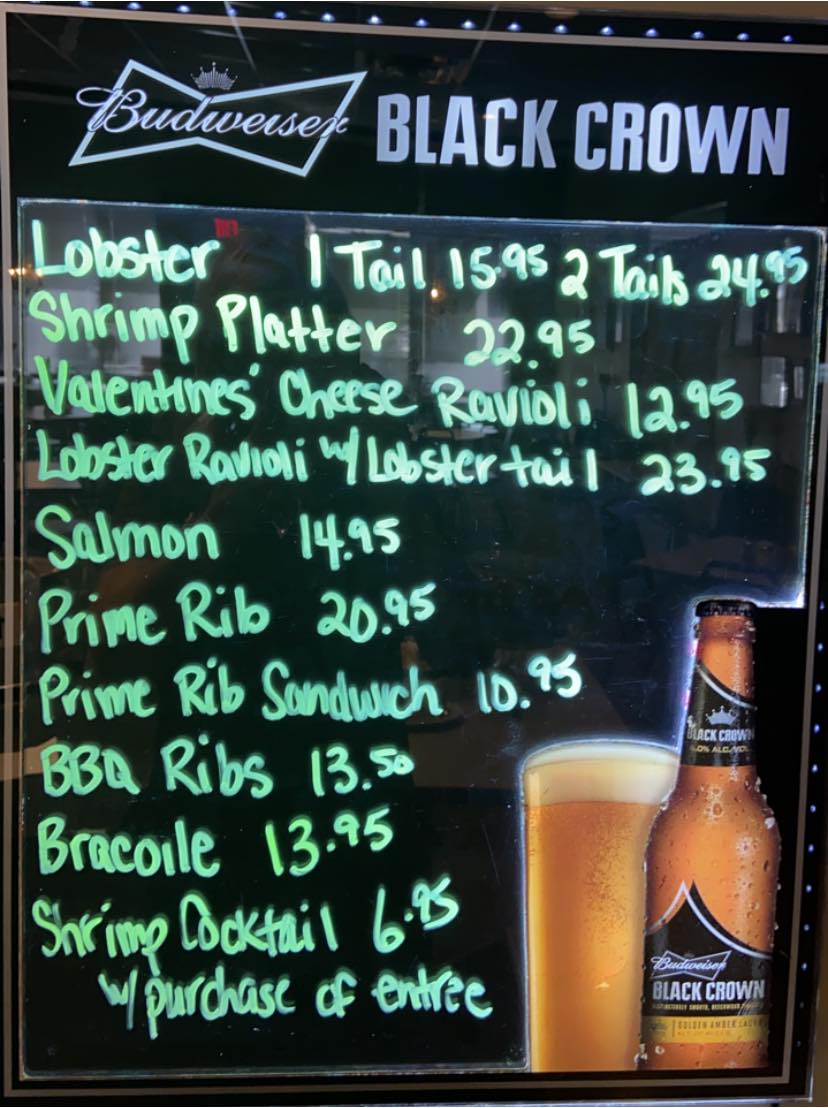 Budweiser BLACK CROWN
Lobster 1 Tail 15.95 2 Tails 24.95
Shrimp Platter 22.95
Valentines' Cheese Ravioli 12.95
Lobster Ravioli w/ Lobster tail 23.95
Salmon 14.95
Prime Rib 20.95
Prime Rib Sandwich 10.95
BBQ Ribs 13.50
Bracoile 13.95
Shrimp Cocktail 6.95
w/ purchase of entree
BLACK CROWN
Budweiser
BLACK CROWN
GOLDEN AMBER LAGER